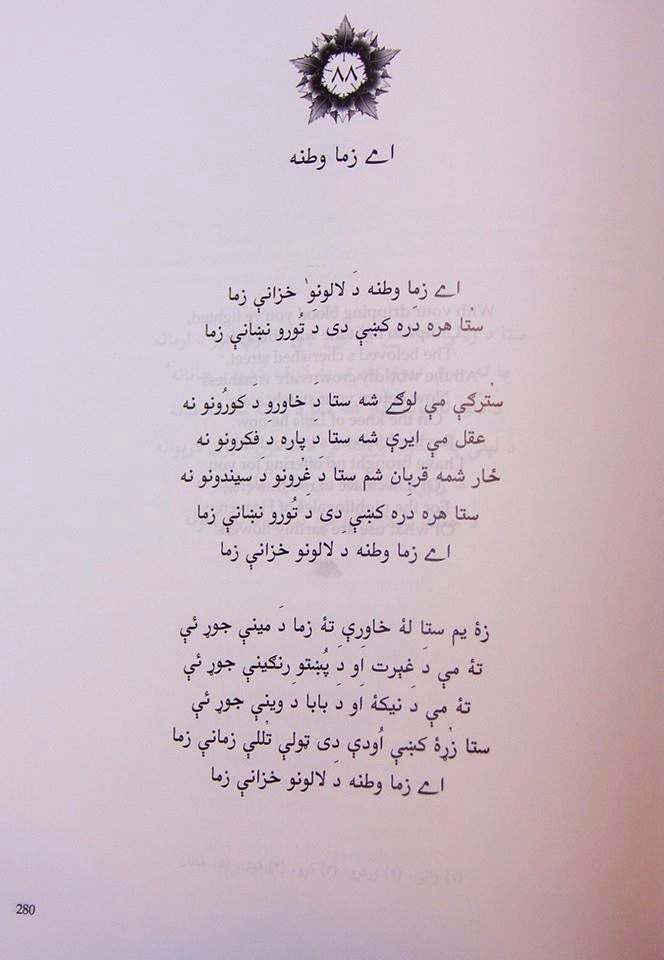 ۸۸
اے زما وطنه
اے زما وطنه دَ لالونو' خزانې زما
ستا هره دره کښې دی دَ تُورو نښانې زما
سترګې مې لوګے شه ستا دَ خاورو دَ کورُونو نه
عقل مې ايرې شه ستا دَ پاره دَ فکرونو نه
ځار شمه قربان شم ستا دَ غرونو دَ سيندونو نه
ستا هره دره کښې دی دَ تُورو نښانې زما
اے زما وطنه دَ لالونو خزانې زما
زۀ يم ستا لۀ خاورې تۀ زما دَ مينې جوړ ئې
تۀ مې دَ غېرت او دَ پُښتو رنګينې جوړ ئې
تۀ مې دَ نيکۀ او دَ بابا د وينې جوړ ئې
ستا زړۀ کښې اُودې دی ټولې تللې زمانې زما
اے زما وطنه دَ لالونو خزانې زما
280